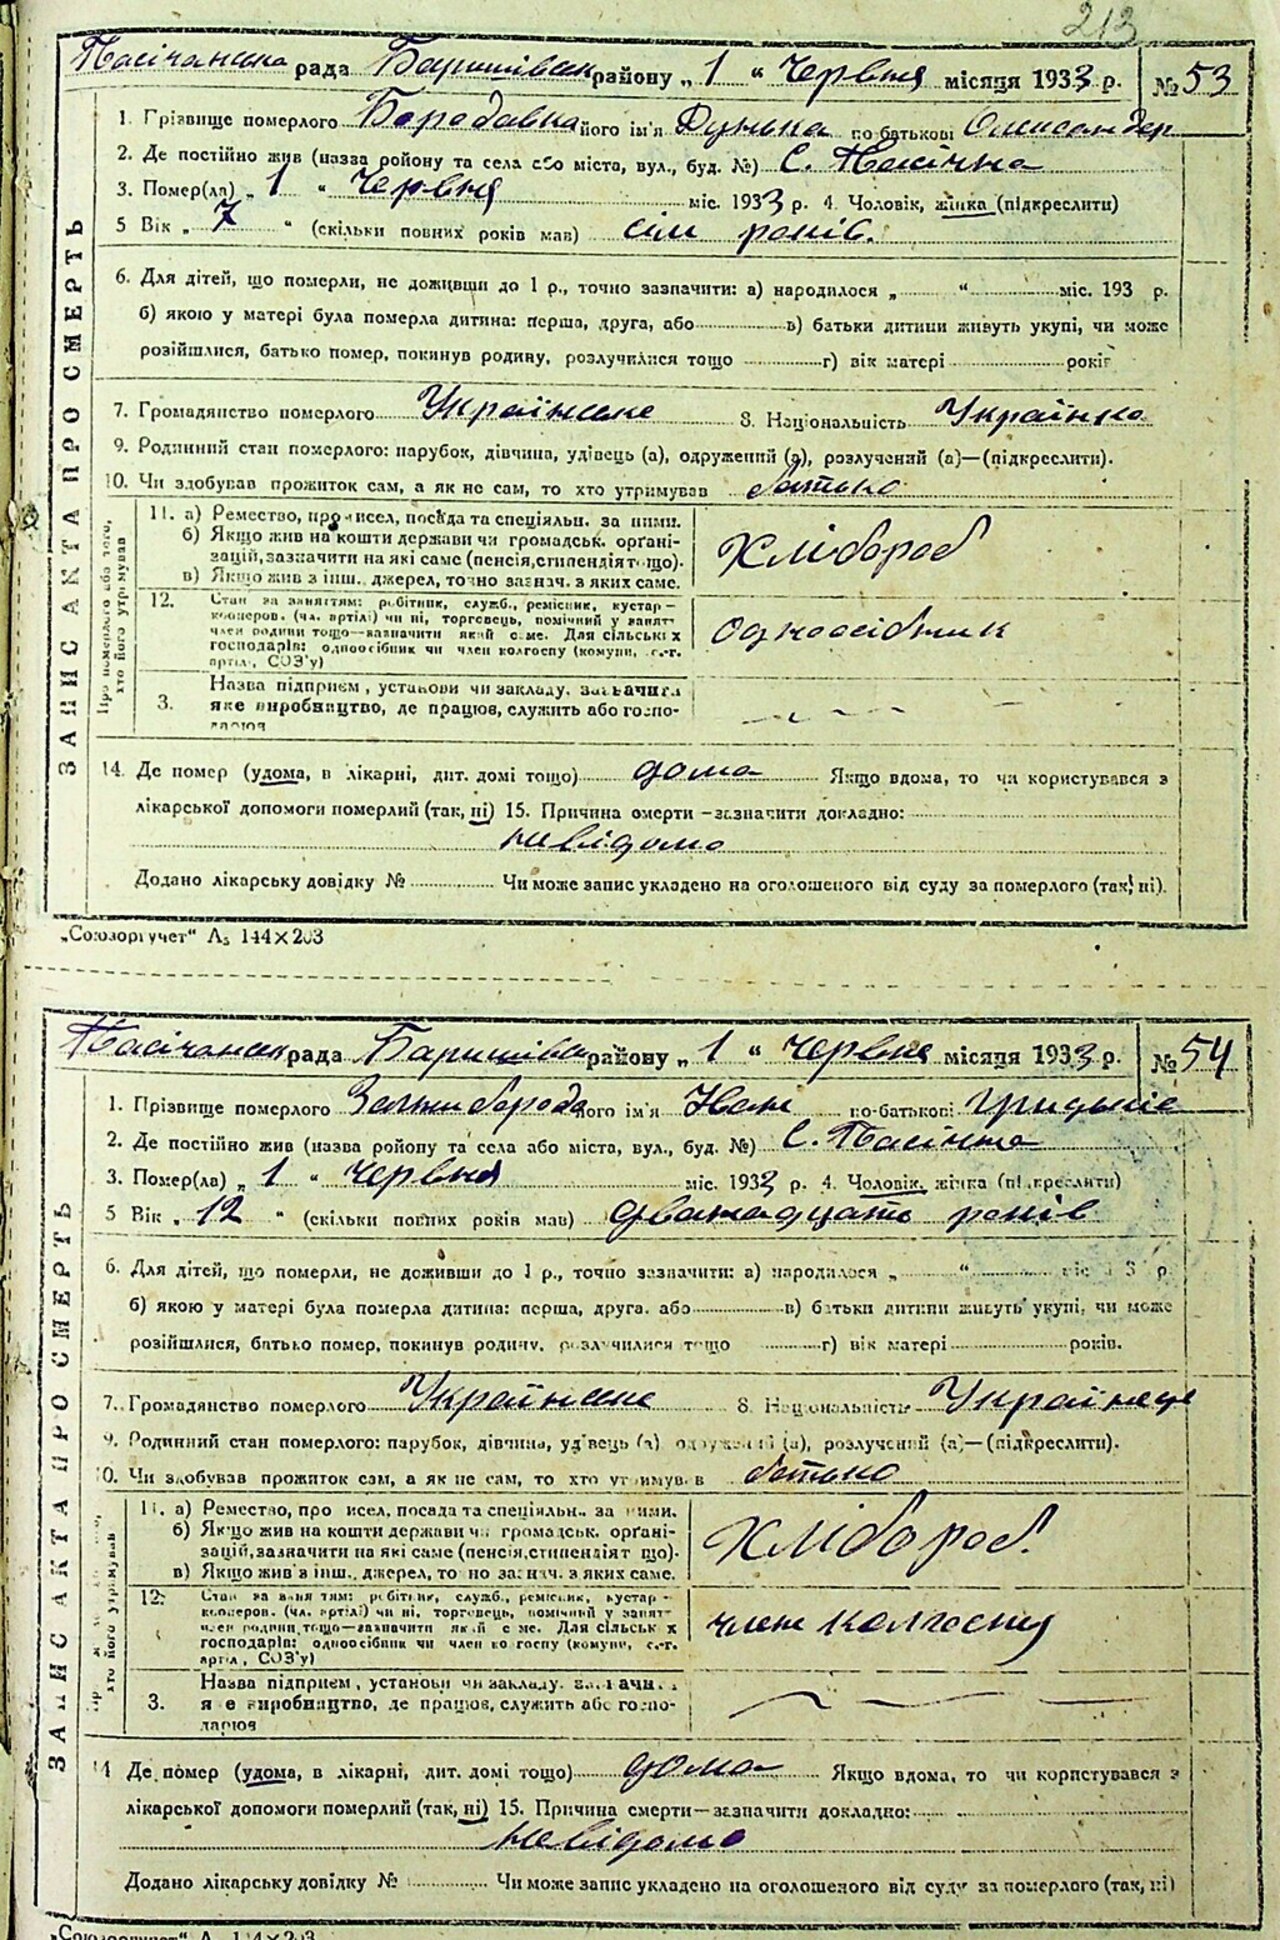 213
Пасічанська рада Баришівськ району „ 1 “ Червня місяця 1933 р. № 53
1. Прізвище померлого Бородавка його ім'я Дунька по-батькові Олександер
2. Де постійно жив (назва району та села або міста, вул., буд. №) С. Пасічна
3. Помер(ла) „ 1 “ Червня міс. 1933 р. 4. Чоловік, жінка (підкреслити)
5 Вік „ 7 “ (скільки повних років мав) сім років.
6. Для дітей, що померли, не доживши до 1 р., точно зазначити: а) народилося „ “ міс. 193 р.
б) якою у матері була померла дитина: перша, друга, або в) батьки дитини живуть укупі, чи може
розійшлися, батько помер, покинув родину, розлучилися тощо г) вік матері років
7. Громадянство померлого Українське 8. Національність Українка
9. Родинний стан померлого: парубок, дівчина, удівець (а), одружений (а), розлучений (а)—(підкреслити).
10. Чи здобував прожиток сам, а як не сам, то хто утримував батько
ЗАПИС АКТА ПРО СМЕРТЬ
Про померлого або того, хто його утримував
11. а) Ремество, промисел, посада та спеціяльн. за ними.
б) Якщо жив на кошти держави чи громадськ. орґані-
зацій, зазначити на які саме (пенсія, стипендія тощо).
в) Якщо жив з інш. джерел, точно зазнач. з яких саме.
Хлібороб
12. Стан за заняттям: робітник, служб., ремісник, кустар—
кооперов. (чл. артілі) чи ні, торговець, помічний у занят-
член родини тощо—зазначити який саме. Для сільських
господарів: одноосібник чи член колгоспу (комуни, с.-г.
артілі, СОЗ'у)
Одноосібник
3. Назва підприєм., установи чи закладу, зазначити
яке виробництво, де працює, служить або госпо-
дарює
14. Де помер (удома, в лікарні, дит. домі тощо) дома Якщо вдома, то чи користувався з
лікарської допомоги померлий (так, ні) 15. Причина смерти—зазначити докладно:
невідомо
Додано лікарську довідку № Чи може запис укладено на оголошеного від суду за померлого (так, ні).
„Союзоргучет“ А₅ 144×203
Пасічанськ рада Баришівськ району „ 1 “ Червня місяця 1933 р. № 54
1. Прізвище померлого його ім'я Іван по-батькові
2. Де постійно жив (назва району та села або міста, вул., буд. №) С. Пасічна
3. Помер(ла) „ 1 “ Червня міс. 1933 р. 4. Чоловік, жінка (підкреслити)
5 Вік „ 12 “ (скільки повних років мав) дванадцать років
6. Для дітей, що померли, не доживши до 1 р., точно зазначити: а) народилося „ “ міс. 193 р.
б) якою у матері була померла дитина: перша, друга, або в) батьки дитини живуть укупі, чи може
розійшлися, батько помер, покинув родину, розлучилися тощо г) вік матері років.
7. Громадянство померлого Українське 8. Національність Українець
9. Родинний стан померлого: парубок, дівчина, удівець (а) одружений (а), розлучений (а)—(підкреслити).
10. Чи здобував прожиток сам, а як не сам, то хто утримував батько
ЗАПИС АКТА ПРО СМЕРТЬ
хто його утримував
11. а) Ремество, промисел, посада та спеціяльн. за ними.
б) Якщо жив на кошти держави чи громадськ. орґані-
зацій, зазначити на які саме (пенсія, стипендія тощо).
в) Якщо жив з інш. джерел, точно зазнач. з яких саме.
Хлібороб.
12. Стан за заняттям: робітник, служб., ремісник, кустар—
кооперов. (чл. артілі) чи ні, торговець, помічний у занят-
член родини тощо—зазначити який саме. Для сільських
господарів: одноосібник чи член колгоспу (комуни, с.-г.
артілі, СОЗ'у)
член колгоспу
3. Назва підприєм., установи чи закладу, зазначити
яке виробництво, де працює, служить або госпо-
дарює
14 Де помер (удома, в лікарні, дит. домі тощо) дома Якщо вдома, то чи користувався з
лікарської допомоги померлий (так, ні) 15. Причина смерти—зазначити докладно:
невідомо
Додано лікарську довідку № Чи може запис укладено на оголошеного від суду за померлого (так, ні)
„Союзоргучет“ А 144×203